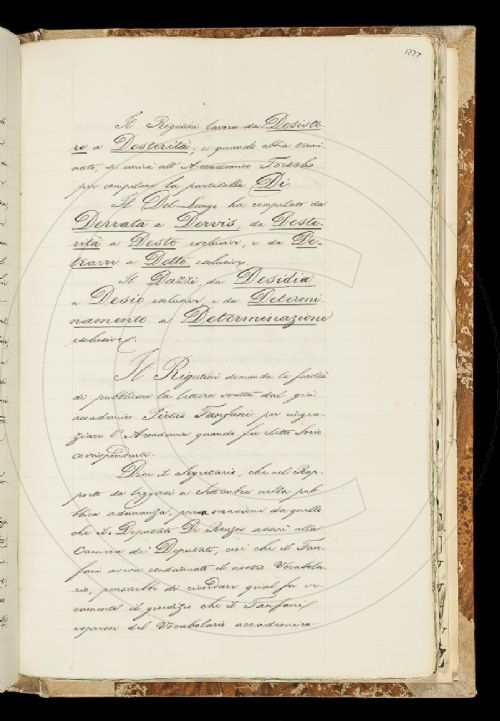 1277
Il Rigutini lavora da Desiste-
re a Desterità, e quando abbia termi-
nato, si unirà all'Accademico Tortoli
per compilare la particella Di.
Il Del-Lungo ha compilato da
Derrata a Dervis, da Deste-
rità a Desto esclusive, e da De-
trarre a Detto esclusive.
Il Dazzi da Desidia
a Desio esclusive e da Determi-
namento a Determinazione
esclusive.
Il Rigutini domanda la facoltà
di pubblicare la lettera scritta dal già
accademico Pietro Fanfani per ringra-
ziare l'Accademia quando fu eletto Socio
corrispondente.
Dice il Segretario, che nel Rap-
porto da leggersi a Settembre nella pub-
blica adunanza, presa occasione da quello
che il Deputato De Renzis asserì alla
Camera dei Deputati, cioè che il Fan-
fani aveva condannato il nostro Vocabola-
rio, penserebbe di ricordare qual fu ve-
ramente il giudizio che il Fanfani
espresse del Vocabolario accademico